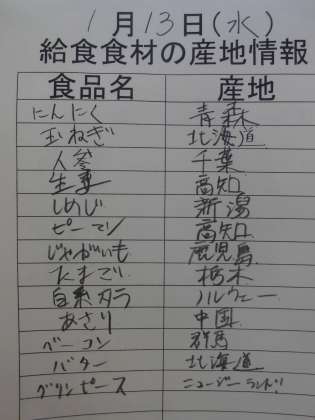 1月13日(水)
給食食材の産地情報
食品名 産地
にんにく 青森
玉ねぎ 北海道
人参 千葉
生姜 高知
しめじ 新潟
ピーマン 高知
じゃがいも 鹿児島
たまご 栃木
白糸タラ ノルウェー
あさり 中国
ベーコン 群馬
バター 北海道
グリンピース ニュージーランド